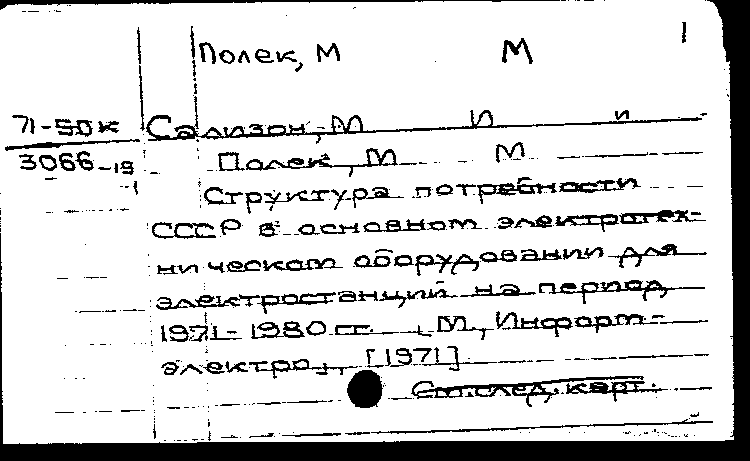 1
Полек, М М
71-50к Сализон, М И и
3066-19 Полек, М М
Структура потребности
СССР в основном электротех-
ническом оборудовании для
электростанций на период
1971-1980 гг. , М., Информ-
электро, [1971]
См.след.карт.